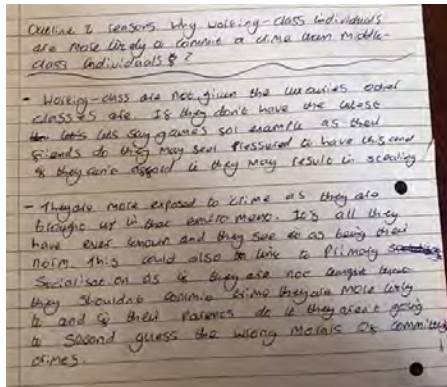 Outline 2 reasons why working-class individuals
are more likely to commit a crime than middle-
class individuals?
- Working-class are not given the luxuries other
classes are. If they don't have the latest
lets say games for example as their
friends do they may feel pressured to have this and
if they can't afford it they may result in stealing
- They are more exposed to crime as they are
brought up in that environment. It's all they
have ever known and they see it as being their
norm. This could also link to Primary
Socialisation as if they are not taught
they shouldn't commit crime they are more likely
to and if their parents do it they aren't going
to second guess the wrong morals of committing
crimes.